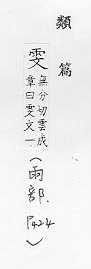 類篇
雯 無分切雲成
章曰雯文一
(雨部.
P424)